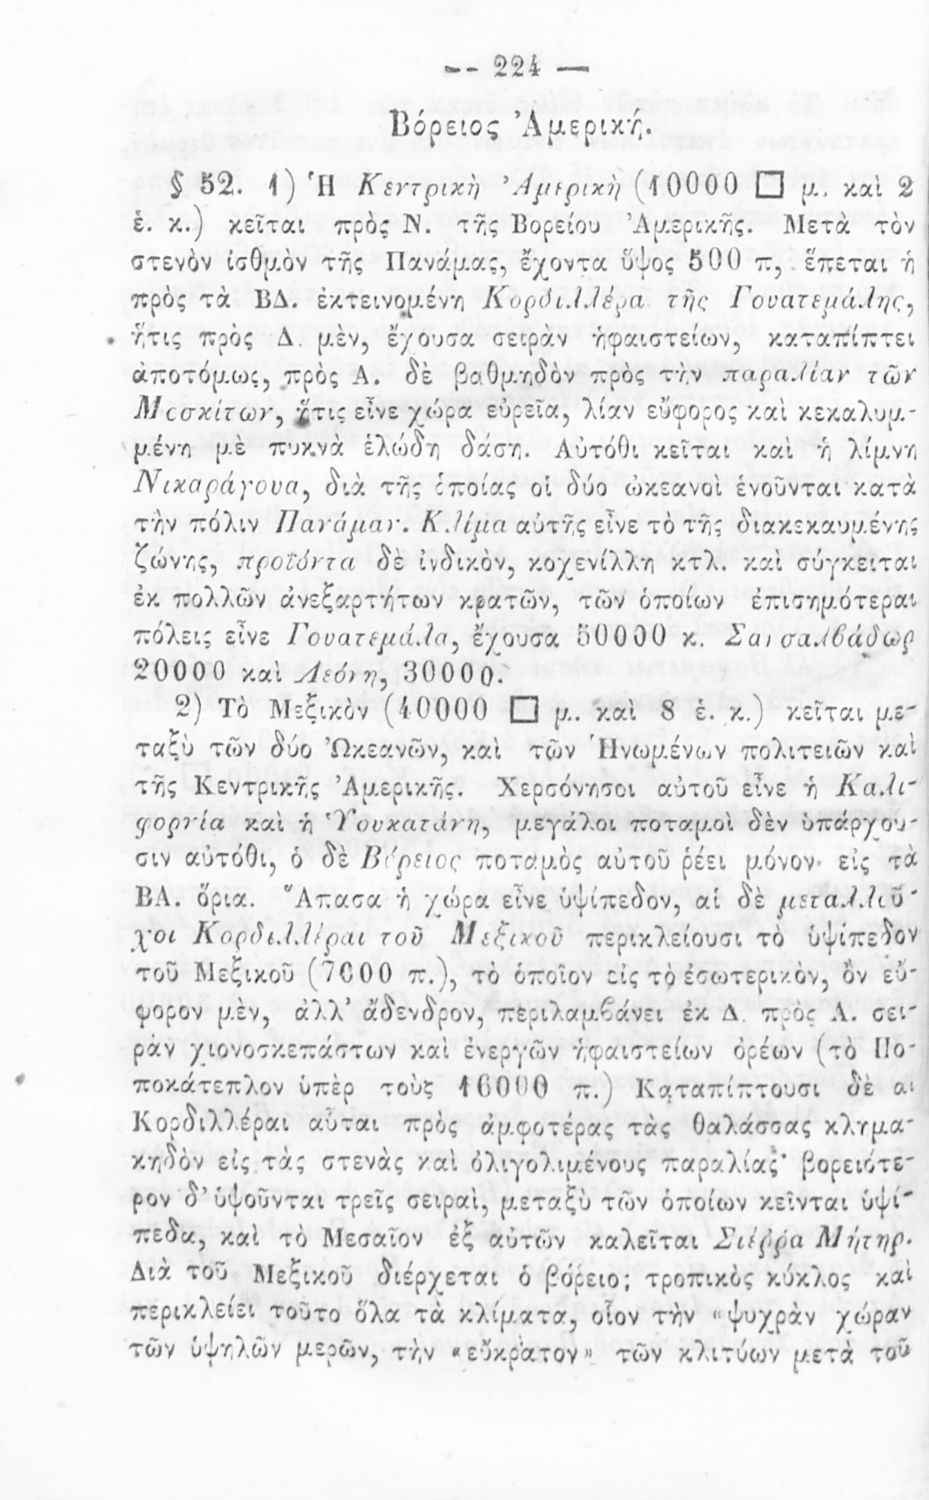 -- 224 —
Βόρειος Ἀμερική.
§ 52. 1) Ἡ Κεντρικὴ Ἀμερικὴ (10000 □ μ. καὶ 2
ἑ. κ.) κεῖται πρὸς Ν. τῆς Βορείου Ἀμερικῆς. Μετὰ τὸν
στενὸν ἰσθμὸν τῆς Πανάμας, ἔχοντα ὕψος 500 π, ἕπεται ἡ
πρὸς τὰ ΒΔ. ἐκτεινομένη Κορδιλλέρα τῆς Γουατεμάλης,
ἥτις πρὸς Δ. μὲν, ἔχουσα σειρὰν ἡφαιστείων, καταπίπτει
ἀποτόμως, πρὸς Α. δὲ βαθμηδὸν πρὸς τὴν παραλίαν τῶν
Μοσκίτων, ἥτις εἶνε χώρα εὐρεῖα, λίαν εὔφορος καὶ κεκαλυμ-
μένη με πυκνὰ ἑλώδη δάση. Αὐτόθι κεῖται καὶ ἡ λίμνη
Νικαράγουα, διὰ τῆς ὁποίας οἱ δύο ὠκεανοὶ ἑνοῦνται κατὰ
τὴν πόλιν Πανάμαν. Κλίμα αὐτῆς εἶνε τὸ τῆς διακεκαυμένης
ζώνης, προϊόντα δὲ ἰνδικὸν, κοχενίλλη κτλ. καὶ σύγκειται
ἐκ πολλῶν ἀνεξαρτήτων κρατῶν, τῶν ὁποίων ἐπισημότεραι
πόλεις εἶνε Γουατεμάλα, ἔχουσα 50000 κ. Σανσαλβάδωρ
20000 καὶ Λεόνη, 30000.
2) Τὸ Μεξικὸν (40000 □ μ. καὶ 8 ἑ. κ.) κεῖται με-
ταξὺ τῶν δύο Ὠκεανῶν, καὶ τῶν Ἡνωμένων πολιτειῶν καὶ
τῆς Κεντρικῆς Ἀμερικῆς. Χερσόνησοι αὐτοῦ εἶνε ἡ Καλι-
φορνία καὶ ἡ Ὑουκατάνη, μεγάλοι ποταμοὶ δὲν ὑπάρχου-
σιν αὐτόθι, ὁ δὲ Βόρειος ποταμὸς αὐτοῦ ῥέει μόνον εἰς τὰ
ΒΑ. ὅρια. Ἅπασα ἡ χώρα εἶνε ὑψίπεδον, αἱ δὲ μεταλλιοῦ-
χοι Κορδιλλέραι τοῦ Μεξικοῦ περικλείουσι τὸ ὑψίπεδον
τοῦ Μεξικοῦ (7000 π.), τὸ ὁποῖον εἰς τὸ ἐσωτερικὸν, ὂν εὔ-
φορον μὲν, ἀλλ’ ἄδενδρον, περιλαμβάνει ἐκ Δ. πρὸς Α. σει-
ρὰν χιονοσκεπάστων καὶ ἐνεργῶν ἡφαιστείων ὀρέων (τὸ Πο-
ποκάτεπλον ὑπὲρ τοὺς 16000 π.) Καταπίπτουσι δὲ αἱ
Κορδιλλέραι αὗται πρὸς ἀμφοτέρας τὰς θαλάσσας κλημα-
κηδὸν εἰς τὰς στενὰς καὶ ὀλιγολιμένους παραλίας· βορειότε-
ρον δ’ ὑψοῦνται τρεῖς σειραὶ, μεταξὺ τῶν ὁποίων κεῖνται ὑψί-
πεδα, καὶ τὸ Μεσαῖον ἐξ αὐτῶν καλεῖται Σιέρρα Μήτηρ.
Διὰ τοῦ Μεξικοῦ διέρχεται ὁ βόρειος τροπικὸς κύκλος καὶ
περικλείει τοῦτο ὅλα τὰ κλίματα, οἷον τὴν «ψυχρὰν χώραν
τῶν ὑψηλῶν μερῶν, τὴν «εὔκρατον» τῶν κλιτύων μετὰ τοῦ